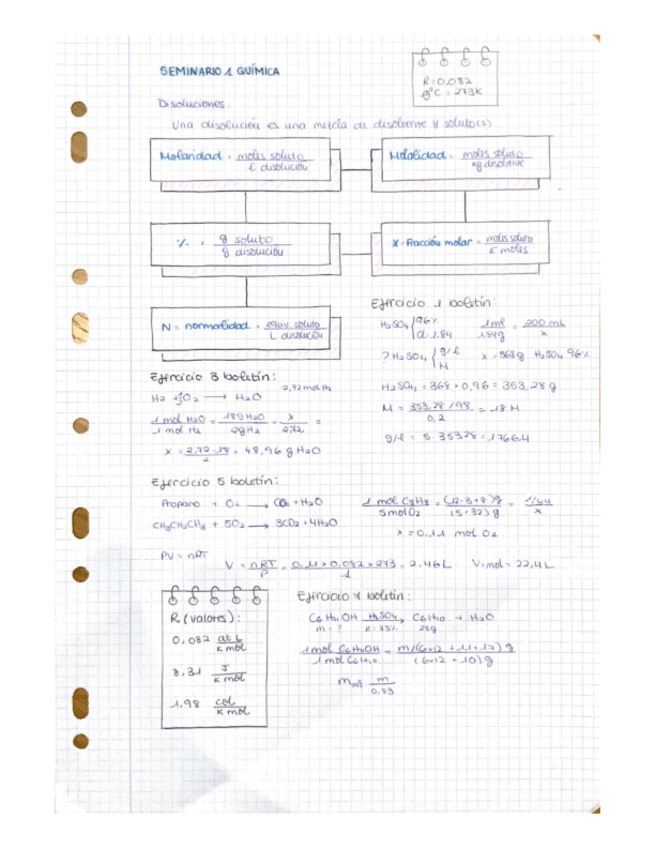 SEMINARIO 1 QUÍMICA
R=0,082
0°C = 273K
Disoluciones.
Una disolución es una mezcla de disolvente y soluto(s)
Molaridad = moles soluto / l disolución
Molalidad = moles soluto / kg disolvente
% = g soluto / g disolución
X = Fracción molar = moles soluto / Σ moles
N = normalidad = equiv. soluto / L disolución
Ejercicio 1 boletín:
H2SO4 { 96% d 1.84
1ml / 1,84g = 200 mL / x
? H2SO4 { g/l M
x = 368g H2SO4 96%
H2SO4 = 368 × 0,96 = 353,28 g
M = 353,28 / 98 / 0,2 = 18 M
g/l = 5 · 353,28 = 1766,4
Ejercicio 3 boletín:
2,72 mol H2
H2 + ½O2 → H2O
1 mol H2O / 1 mol H2 = 18g H2O / 2g H2 = x / 2,72 =
x = 2,72 · 18 / 2 = 48,96 g H2O
Ejercicio 5 boletín:
Propano + O2 → CO2 + H2O
CH3CH2CH3 + 5O2 → 3CO2 + 4H2O
1 mol C3H8 / 5 mol O2 = (12·3+8)g / (5·32)g = 1/44 / x
x = 0,11 mol O2
PV = nRT
V = nRT / P = 0,11 × 0,082 × 273 / 1 = 2,46 L V1mol = 22,4 L
R (valores):
0,082 at L / K mol
8,31 J / K mol
1,98 cal / K mol
Ejercicio 7 boletín:
C6H11OH H2SO4 → C6H10 + H2O
m = ? R = 83% 25g
1 mol C6H11OH / 1 mol C6H10 = m/(6×12 + 11+17) g / (6×12 + 10) g
m / 0,83